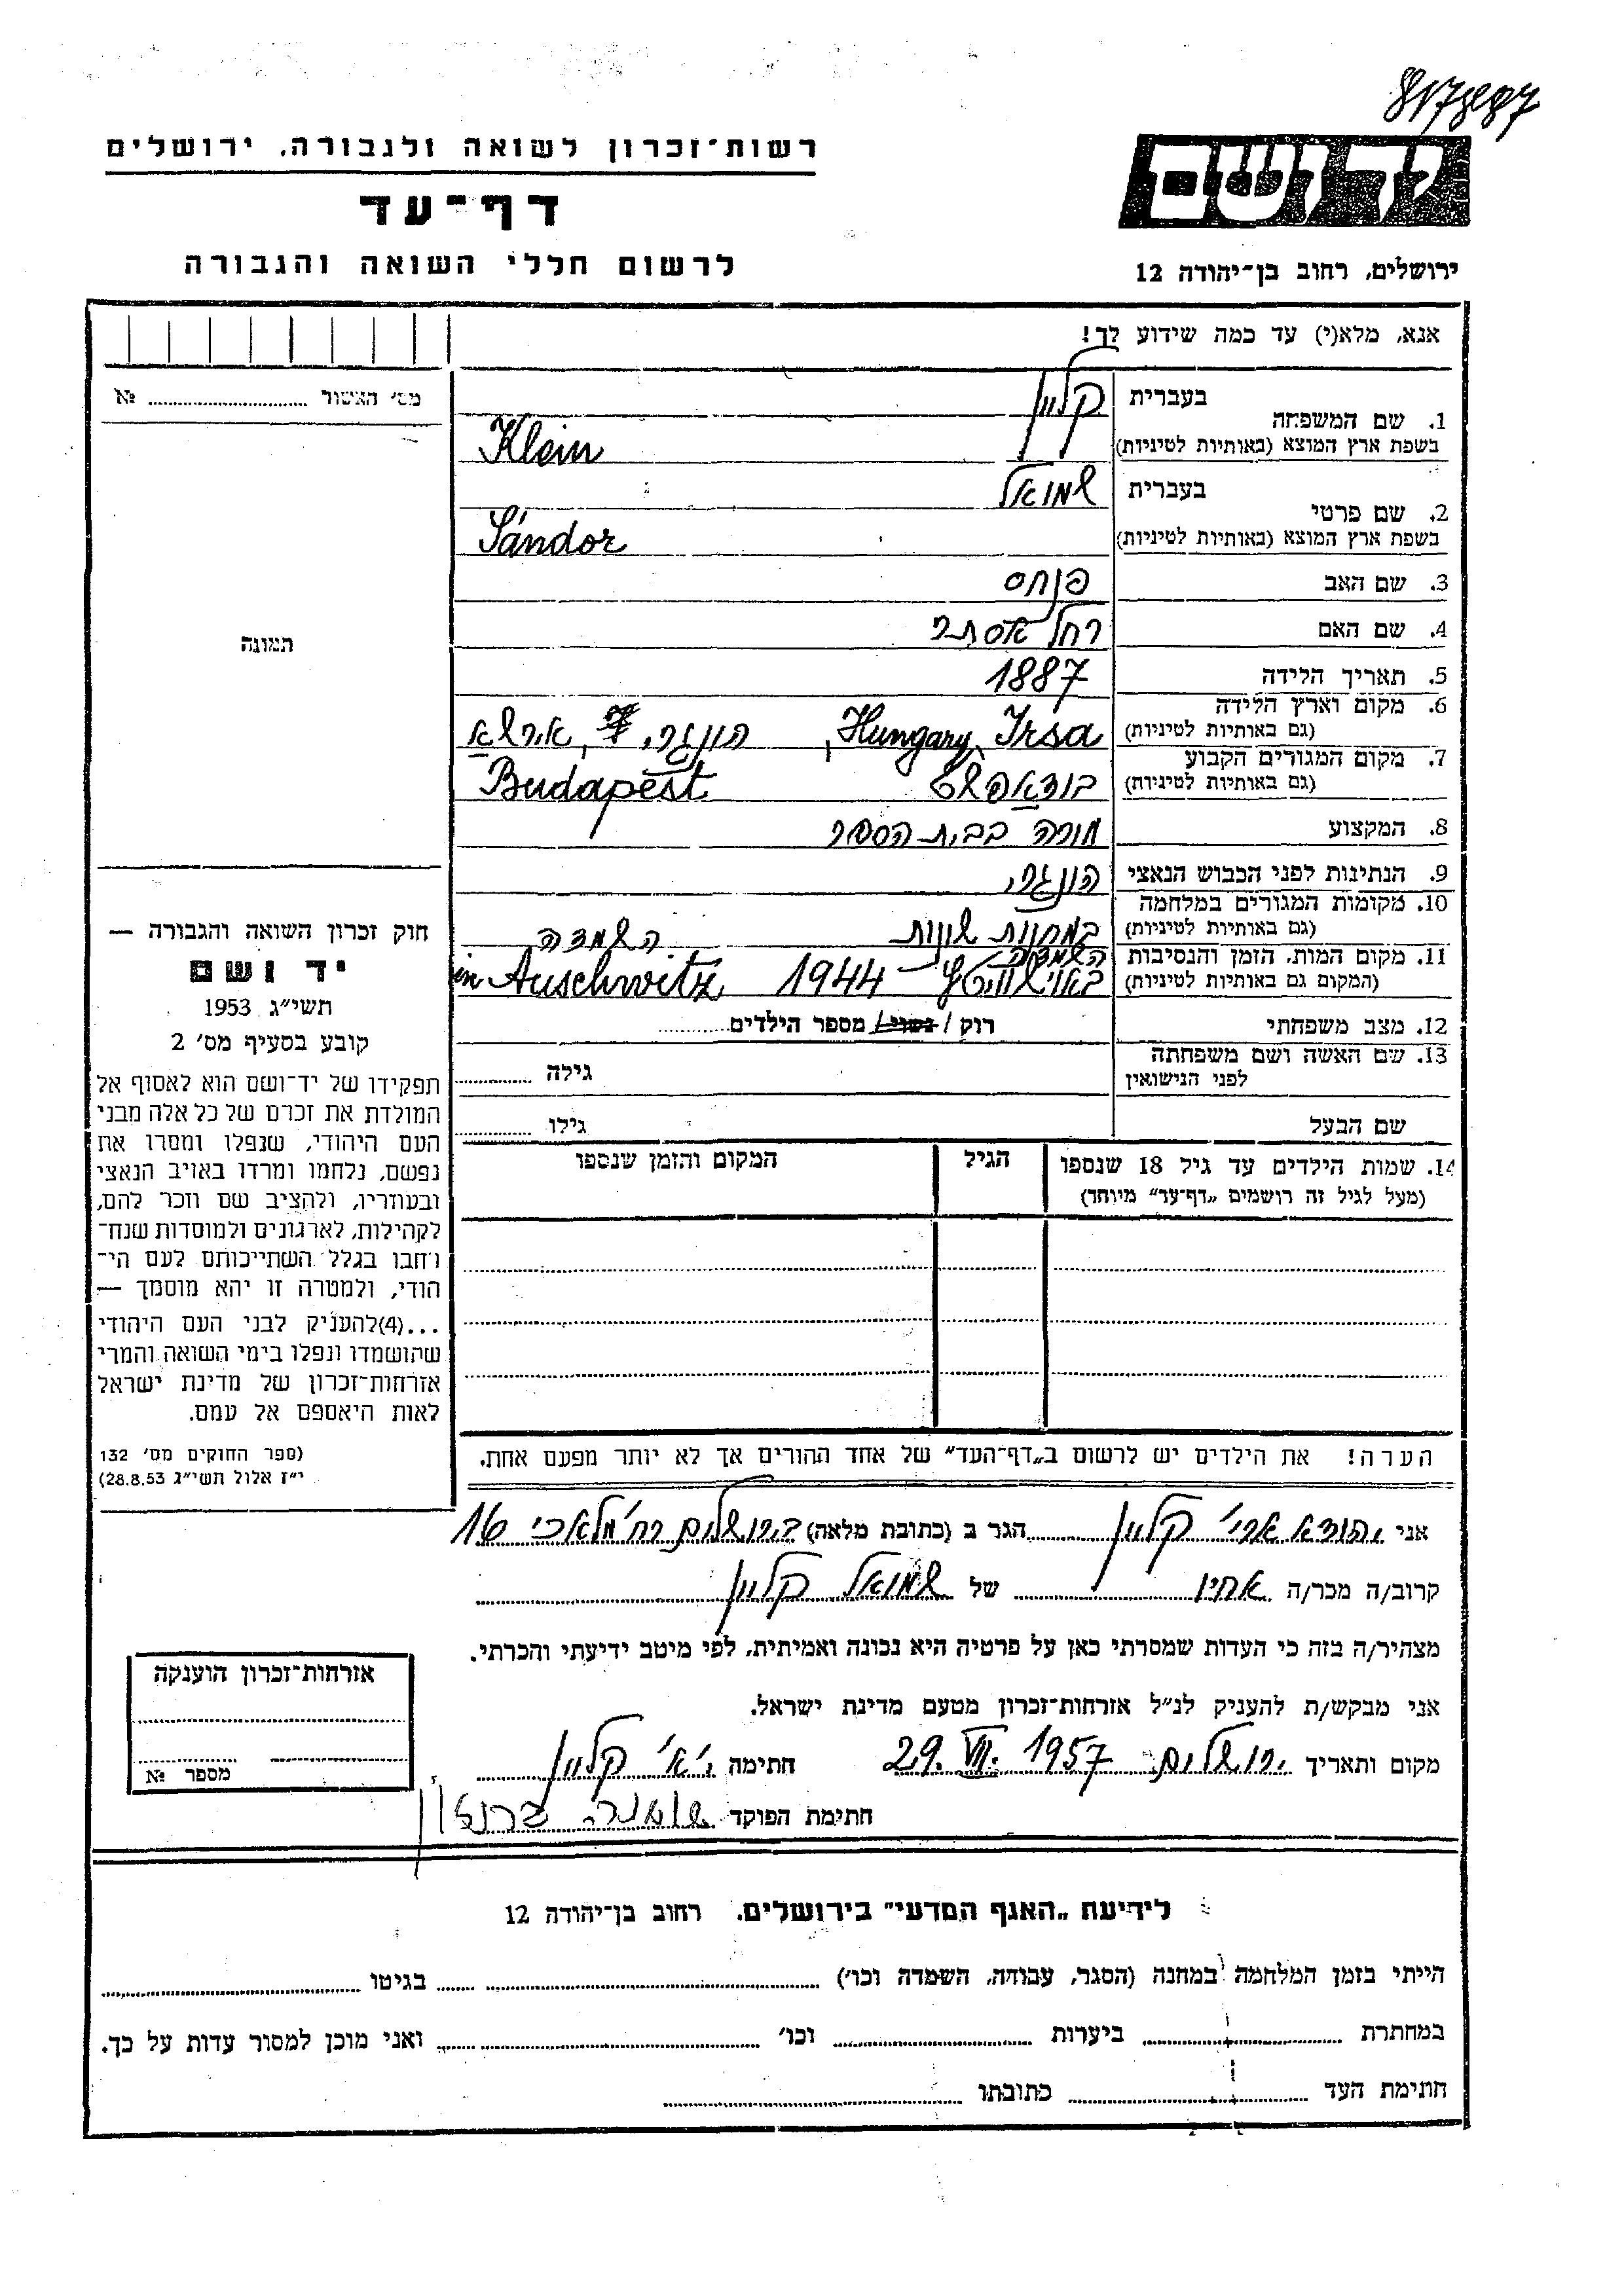 817887
רשות־זכרון לשואה ולגבורה, ירושלים
יד ושם
דף־עד
לרשום חללי השואה והגבורה
ירושלים, רחוב בן־יהודה 12
אנא, מלא(י) עד כמה שידוע לך!
מס' האשור № ........
1. שם המשפחה
בעברית קליין
בשפת ארץ המוצא (באותיות לטיניות) Klein
2. שם פרטי
בעברית שמואל
בשפת ארץ המוצא (באותיות לטיניות) Sándor
3. שם האב פנחס
4. שם האם רחל אסתר
תמונה
5. תאריך הלידה 1887
6. מקום וארץ הלידה
(גם באותיות לטיניות) Hungary, Irsa, הונגרי, אירשא
7. מקום המגורים הקבוע
(גם באותיות לטיניות) בודאפשט Budapest
8. המקצוע מורה בבית הספר
9. הנתינות לפני הכבוש הנאצי הונגרי
10. מקומות המגורים במלחמה
(גם באותיות לטיניות) במחנות שונות השמדה
11. מקום המות, הזמן והנסיבות
(המקום גם באותיות לטיניות) השמדה באוישוויטץ 1944 in Auschwitz
12. מצב משפחתי רוק / נשוי / מספר הילדים........
13. שם האשה ושם משפחתה
לפני הנישואין
גילה ........
שם הבעל גילו ........
14. שמות הילדים עד גיל 18 שנספו
(מעל לגיל זה רושמים „דף־עד” מיוחד)
הגיל
המקום והזמן שנספו
חוק זכרון השואה והגבורה —
יד ושם
תשי״ג 1953
קובע בסעיף מס' 2
תפקידו של יד־ושם הוא לאסוף אל
המולדת את זכרם של כל אלה מבני
העם היהודי, שנפלו ומסרו את
נפשם, נלחמו ומרדו באויב הנאצי
ובעוזריו, ולהציב שם וזכר להם,
לקהילות, לארגונים ולמוסדות שנח־
רחבו בגלל השתייכותם לעם הי־
הודי, ולמטרה זו יהא מוסמך —
...(4)להעניק לבני העם היהודי
שהושמדו ונפלו בימי השואה והמרי
אזרחות־זכרון של מדינת ישראל
לאות היאספם אל עמם.
(ספר החוקים מס' 132
י״ז אלול תשי״ג 28.8.53)
הערה! את הילדים יש לרשום ב„דף־העד” של אחד ההורים אך לא יותר מפעם אחת.
אני יהודא ארי' קליין הגר ב (כתובת מלאה) בירושלים רח' מלאכי 16
קרוב/ה מכר/ה אחיו של שמואל קליין
מצהיר/ה בזה כי העדות שמסרתי כאן על פרטיה היא נכונה ואמיתית, לפי מיטב ידיעתי והכרתי.
אני מבקש/ת להעניק לנ״ל אזרחות־זכרון מטעם מדינת ישראל.
מקום ותאריך ירושלים. 29. VII. 1957 חתימה י' א' קליין
חתימת הפוקד
אזרחות־זכרון הוענקה
מספר №
לידיעת „האגף המדעי” בירושלים, רחוב בן־יהודה 12
הייתי בזמן המלחמה במחנה (הסגר, עבודה, השמדה וכו') ........ בגיטו ........
במחתרת ........ ביערות ........ וכו' ........ ואני מוכן למסור עדות על כך.
חתימת העד ........ כתובתו ........